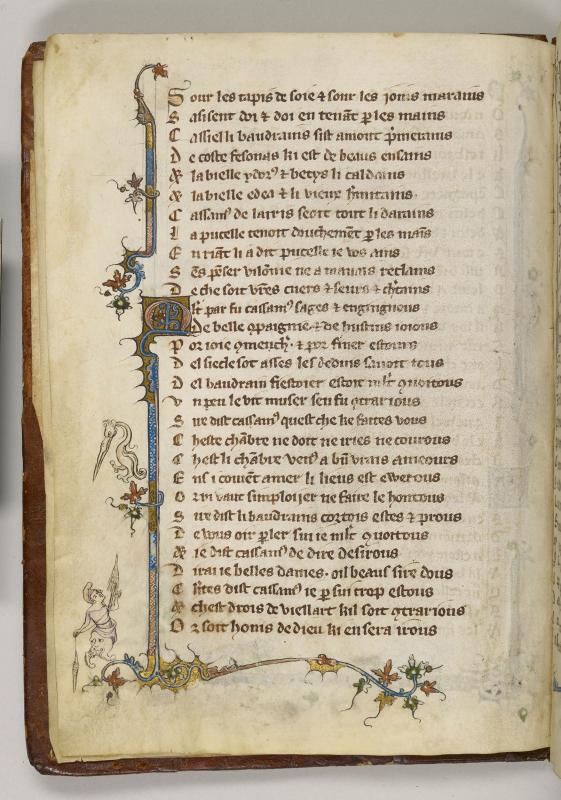 Sour les tapis de soie & sour les ionis marauis
S asisent doi & doi en tenāt p les mains
C assiel li baudrains sist amont p̄metains
D e coste fesonas ki est de beaus ensains
& la bielle ydor⁹ & betys li caldains
& la bielle edea & li vieux hmitains
C assam⁹ de larris seoit tout li darains
L a pucelle tenoit douchemēt p les maīs
E n riāt li a dit pucelle ie vos ains
S ēs pēser vilōnie ne a mauuais reclains
D e che soit vr̄es cuers & seurs & ch̄tains
M lt̄ par fu cassam⁹ sages & engignous
De belle ꝯpaignie & de hustins ioious
P or ioie ꝯmenchʼ & por finer estours
D el siecle sot asses les deduis sauoit tous
D el baudrain fiestoier estoit mlt̄ ꝯuoitous
V n peu le vit muser sen fu ꝯtrarious
S ire dist cassam⁹ quest che ke faites vous
C heste chābre ne doit ne iries ne courous
C hest li chābre ven⁹ a bn̄ vrais ameours
E nsi ꝯuiēt amer li lieus est ewerous
O r ni vaut simploijer ne faire le hontous
S ire dist li baudrains cortois estes & prous
D e vous oir pler sui ie mlt̄ ꝯuoitous
& ie dist cassam⁹ de dire desirous
D irai ie belles dames · oil beaus sire dous
C ertes dist cassam⁹ ie p sui trop estous
& chest drois de viellart kil soit ꝯtrarious
O r soit honis de dieu ki en sera irous